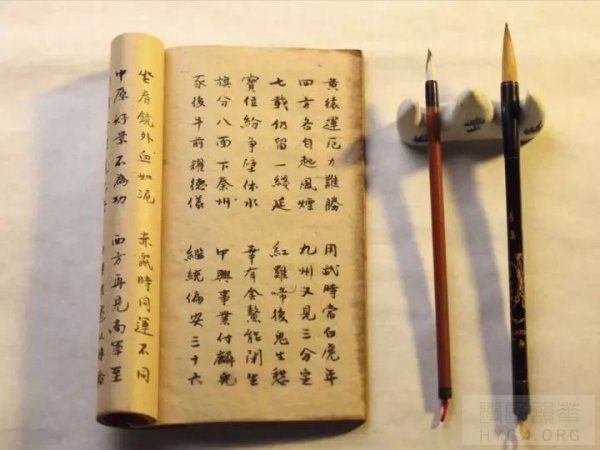 黄猿運厄力難勝 用武時當白虎年
四方各自起風煙 九州又見三分定
七載仍留一綫延 紅雞啼後鬼生愁
寶位紛爭 幸有金鰲能
旗分八面下秦州 中興事業付麟兒
豕後牛前耀德儀 繼統偏安三十六
坐看鏡外血如泥 赤鼠時同運不同
中原好景不為功 西方再見南軍至